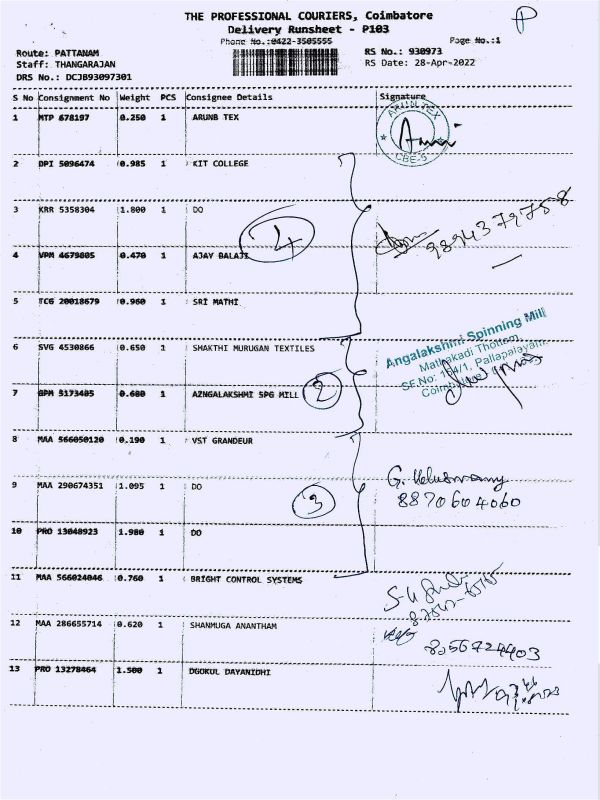 THE PROFESSIONAL COURIERS, Coimbatore
Delivery Runsheet - P103
P
Phone No.:0422-3505555
Page No.:1
Route: PATTANAM
RS No.: 930973
Staff: THANGARAJAN
RS Date: 28-Apr-2022
DRS No.: DCJB93097301
S No Consignment No Weight PCS Consignee Details Signature
1 MTP 678197 0.250 1 ARUNB TEX
ARUN TEX
CBE-5
2 DPI 5096474 0.985 1 KIT COLLEGE
3 KRR 5358304 1.800 1 DO
4
9894379758
4 VPM 4679805 0.470 1 AJAY BALAJI
5 TCG 20018679 0.960 1 SRI MATHI
6 SVG 4530866 0.650 1 SHAKTHI MURUGAN TEXTILES
Angalakshmi Spinning Mill
Mathakadi Thottam,
SF.No: 184/1, Pallapalayam
2
7 GPM 3173405 0.680 1 AZNGALAKSHMI SPG MILL
8 MAA 566050120 0.190 1 VST GRANDEUR
9 MAA 290674351 1.095 1 DO
3
8870604060
10 PRO 13048923 1.980 1 DO
11 MAA 566024046 0.760 1 BRIGHT CONTROL SYSTEMS
12 MAA 286655714 0.620 1 SHANMUGA ANANTHAM
8056724403
13 PRO 13278464 1.500 1 DGOKUL DAYANIDHI